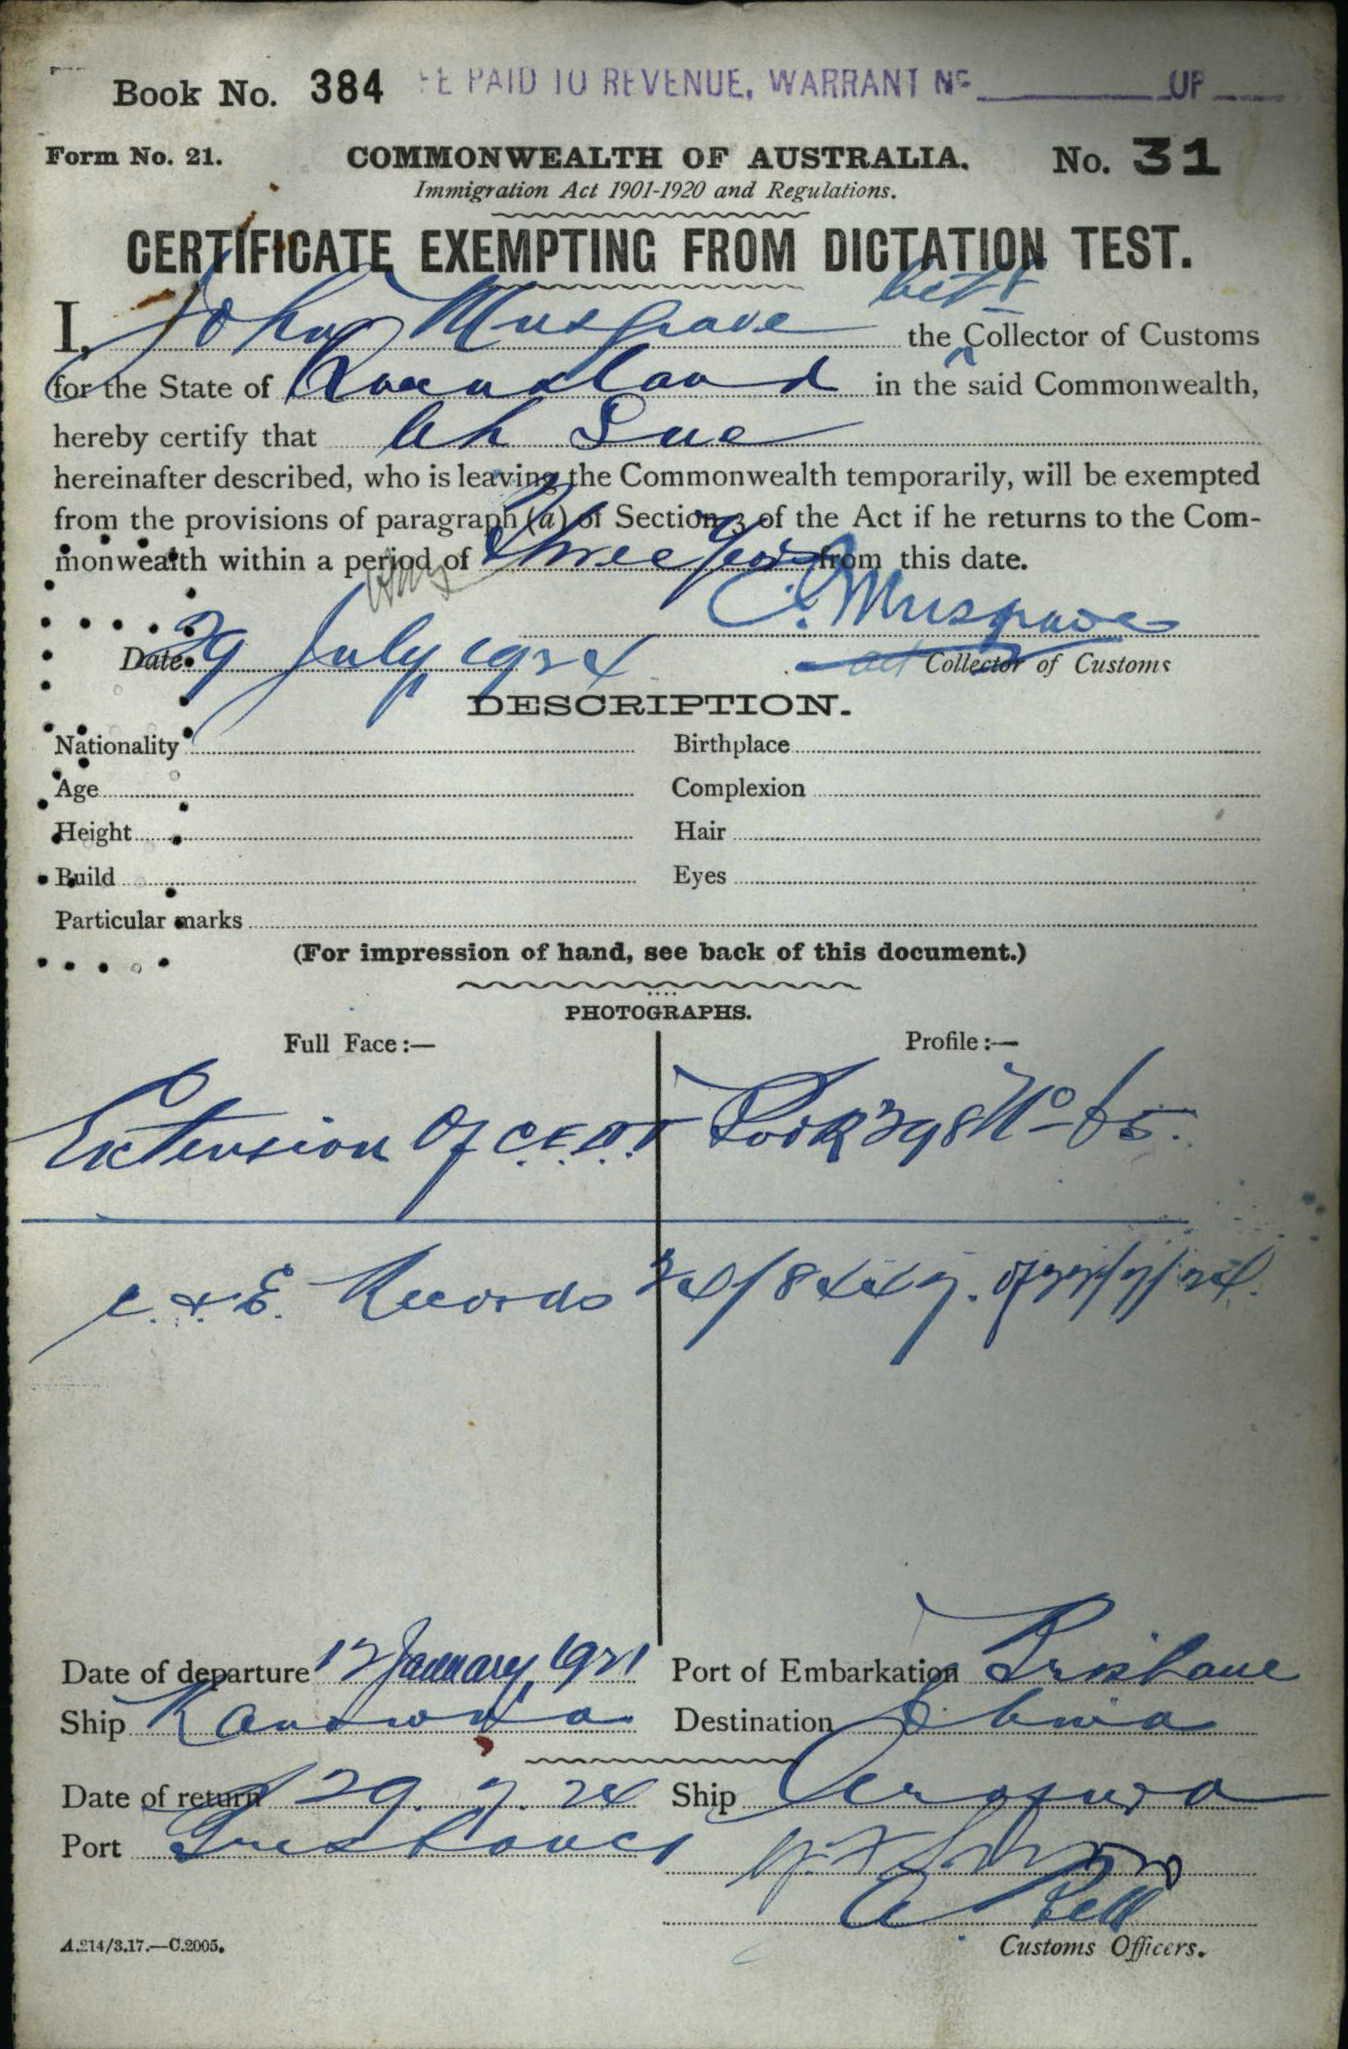 Book No. 384 FE PAID TO REVENUE, WARRANT No ______ OF ____
Form No. 21. COMMONWEALTH OF AUSTRALIA. No. 31
Immigration Act 1901-1920 and Regulations.
CERTIFICATE EXEMPTING FROM DICTATION TEST.
I, John Musgrave the Collector of Customs
for the State of Queensland in the said Commonwealth,
hereby certify that Ah Sue
hereinafter described, who is leaving the Commonwealth temporarily, will be exempted
from the provisions of paragraph (a) of Section 3 of the Act if he returns to the Com-
monwealth within a period of Three Years from this date.
Musgrave
Date 29 July 1924 Collector of Customs
DESCRIPTION.
Nationality Birthplace
Age Complexion
Height Hair
Build Eyes
Particular marks
(For impression of hand, see back of this document.)
PHOTOGRAPHS.
Full Face:— Profile:—
Extension of C.E.D.T Book 398 No 65.
C. & E. Records 24/8447. of
Date of departure 12 January 1921 Port of Embarkation Brisbane
Ship Kanowna Destination China
Date of return 29. 7. 24 Ship Arafura
Port Brisbane
A Bell
A.214/3.17.—C.2005. Customs Officers.